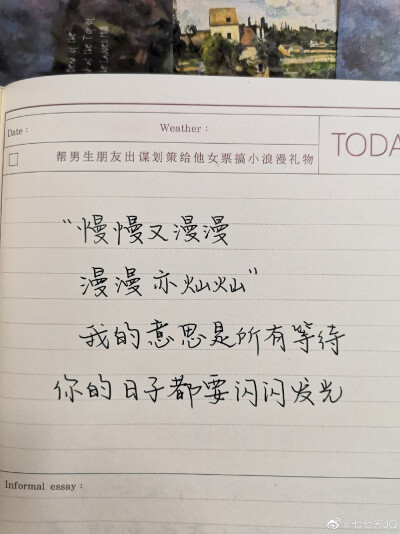 Date :
Weather :
帮男生朋友出谋划策给他女票搞小浪漫礼物
TODA
“慢慢又漫漫
漫漫亦灿灿”
我的意思是所有等待
你的日子都要闪闪发光
Informal essay :